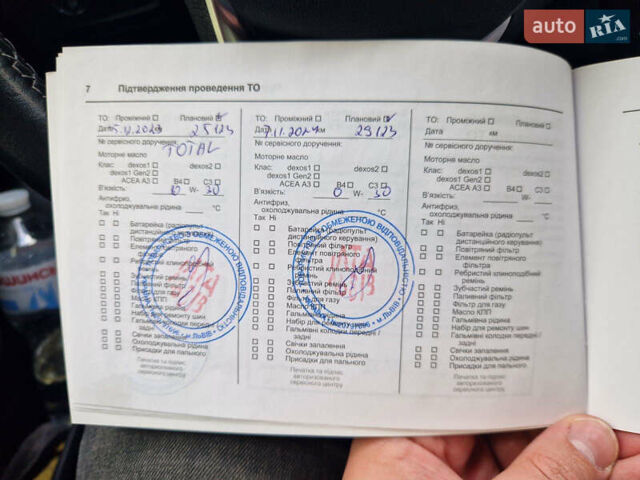 auto RIA.com
7 Підтвердження проведення ТО
ТО: Проміжний Плановий
Дата 5.12.2023 25123
№ сервісного доручення:
TOTAL
Моторне масло
Клас: dexos1 dexos2
dexos1 Gen2
ACEA A3 B4 C3
В'язкість: 0 W- 30
Антифриз,
охолоджувальна рідина °C
Так Ні
Батарейка (радіопульт
дистанційного керування)
Повітряний фільтр
Елемент повітряного
Ребристий клиноподібний
ремінь
Зубчастий ремінь
Паливний фільтр
Фільтр для газу
Масло КПП
Гальмівна рідина
Набір для ремонту шин
Гальмівні колодки передні /
задні
Свічки запалення
Охолоджувальна рідина
Присадки для пального
Печатка та підпис
авторизованого
сервісного центру
ТО: Проміжний Плановий
Дата 7.11.2024 км 29123
№ сервісного доручення:
Моторне масло
Клас: dexos1 dexos2
dexos1 Gen2
ACEA A3 B4 C3
В'язкість: 0 W- 30
Антифриз,
охолоджувальна рідина °C
Так Ні
Батарейка (радіопульт
дистанційного керування)
Повітряний фільтр
Елемент повітряного
фільтра
Ребристий клиноподібний
ремінь
Зубчастий ремінь
Паливний фільтр
Фільтр для газу
Масло КПП
Гальмівна рідина
Набір для ремонту шин
Гальмівні колодки передні /
задні
Свічки запалення
Охолоджувальна рідина
Присадки для пального
Печатка та підпис
авторизованого
сервісного центру
ТО: Проміжний Плановий
Дата км
№ сервісного доручення:
Моторне масло
Клас: dexos1 dexos2
dexos1 Gen2
ACEA A3 B4 C3
В'язкість: W-
Антифриз,
охолоджувальна рідина °C
Так Ні
Батарейка (радіопульт
дистанційного керування)
Повітряний фільтр
Елемент повітряного
фільтра
Ребристий клиноподібний
ремінь
Зубчастий ремінь
Паливний фільтр
Фільтр для газу
Масло КПП
Гальмівна рідина
Набір для ремонту шин
Гальмівні колодки передні /
задні
Свічки запалення
Охолоджувальна рідина
Присадки для пального
Печатка та підпис
авторизованого
сервісного центру
ОБМЕЖЕНОЮ ВІДПОВІДАЛЬНІСТЮ
м.Львів